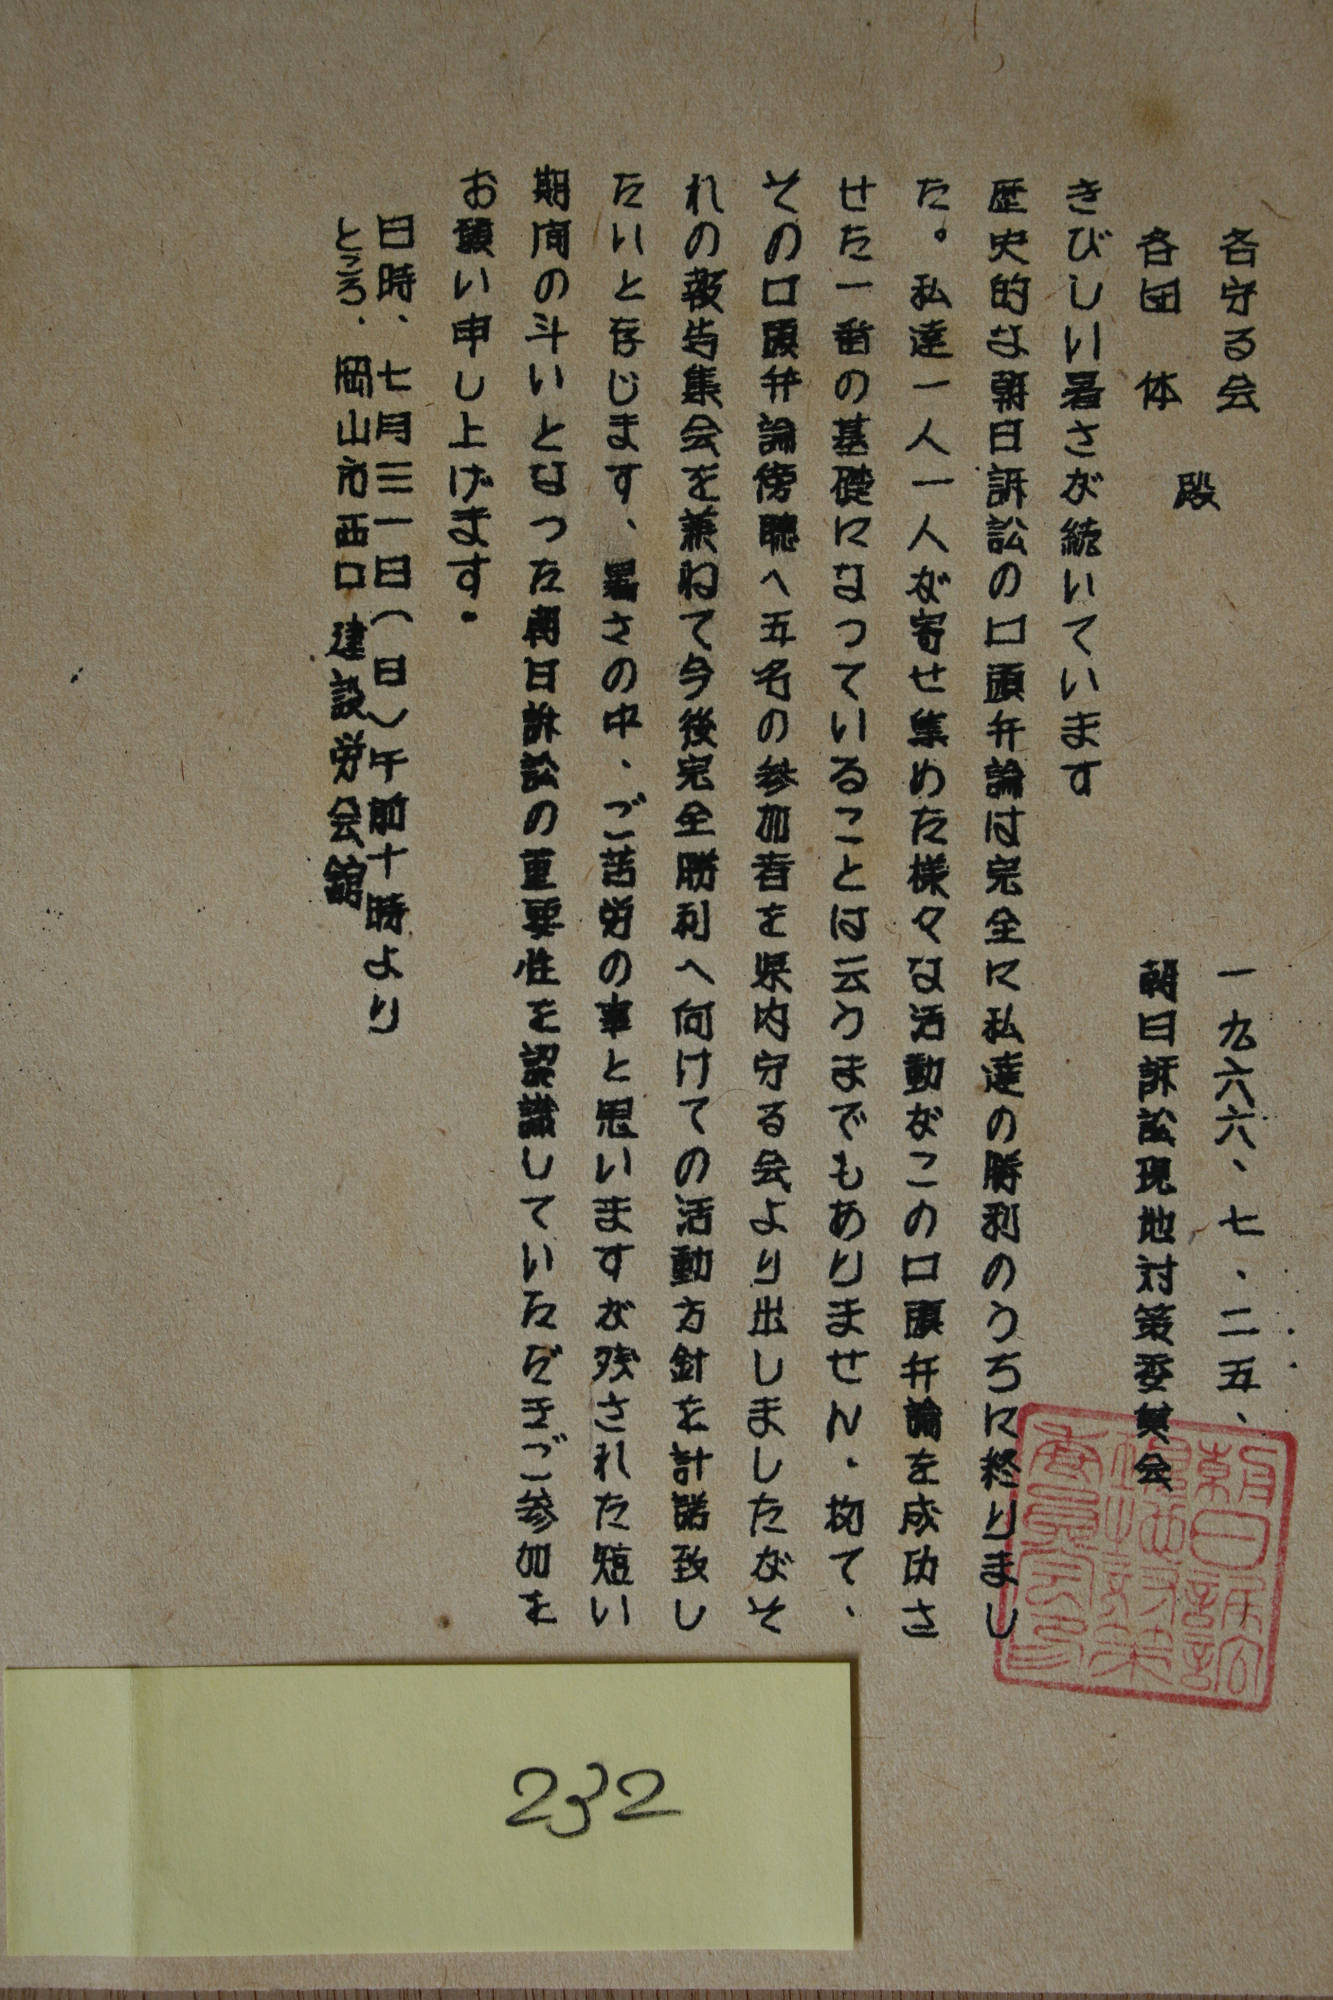 一九六六、七、二五、
各守る会
朝日訴訟現地対策委員会
各団体
殿
きびしい暑さが続いています
歴史的な朝日訴訟の口頭弁論は完全に私達の勝利のうちに終りまし
た。私達一人一人が寄せ集めた様々な活動がこの口頭弁論を成功さ
せた一番の基礎になっていることは云うまでもありません・扨て、
その口頭弁論傍聴へ五名の参加者を県内守る会より出しましたがそ
れの報告集会を兼ねて今後完全勝利へ向けての活動方針を計議致し
たいと存じます、暑さの中、ご苦労の事と思いますが残された短い
期間の斗いとなった朝日訴訟の重要性を認識していただきご参加を
お願い申し上げます。
日時、七月三一日(日)午前十時より
ところ、岡山市西口 建設労会館
朝日訴訟
現地対策
委員会印
232